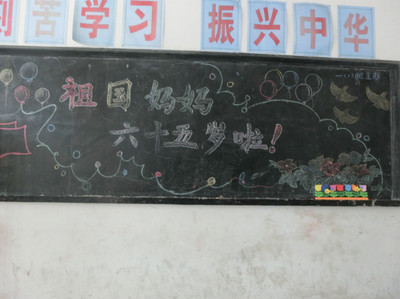 刻苦学习 振兴中华
祖国妈妈
六十五岁啦！